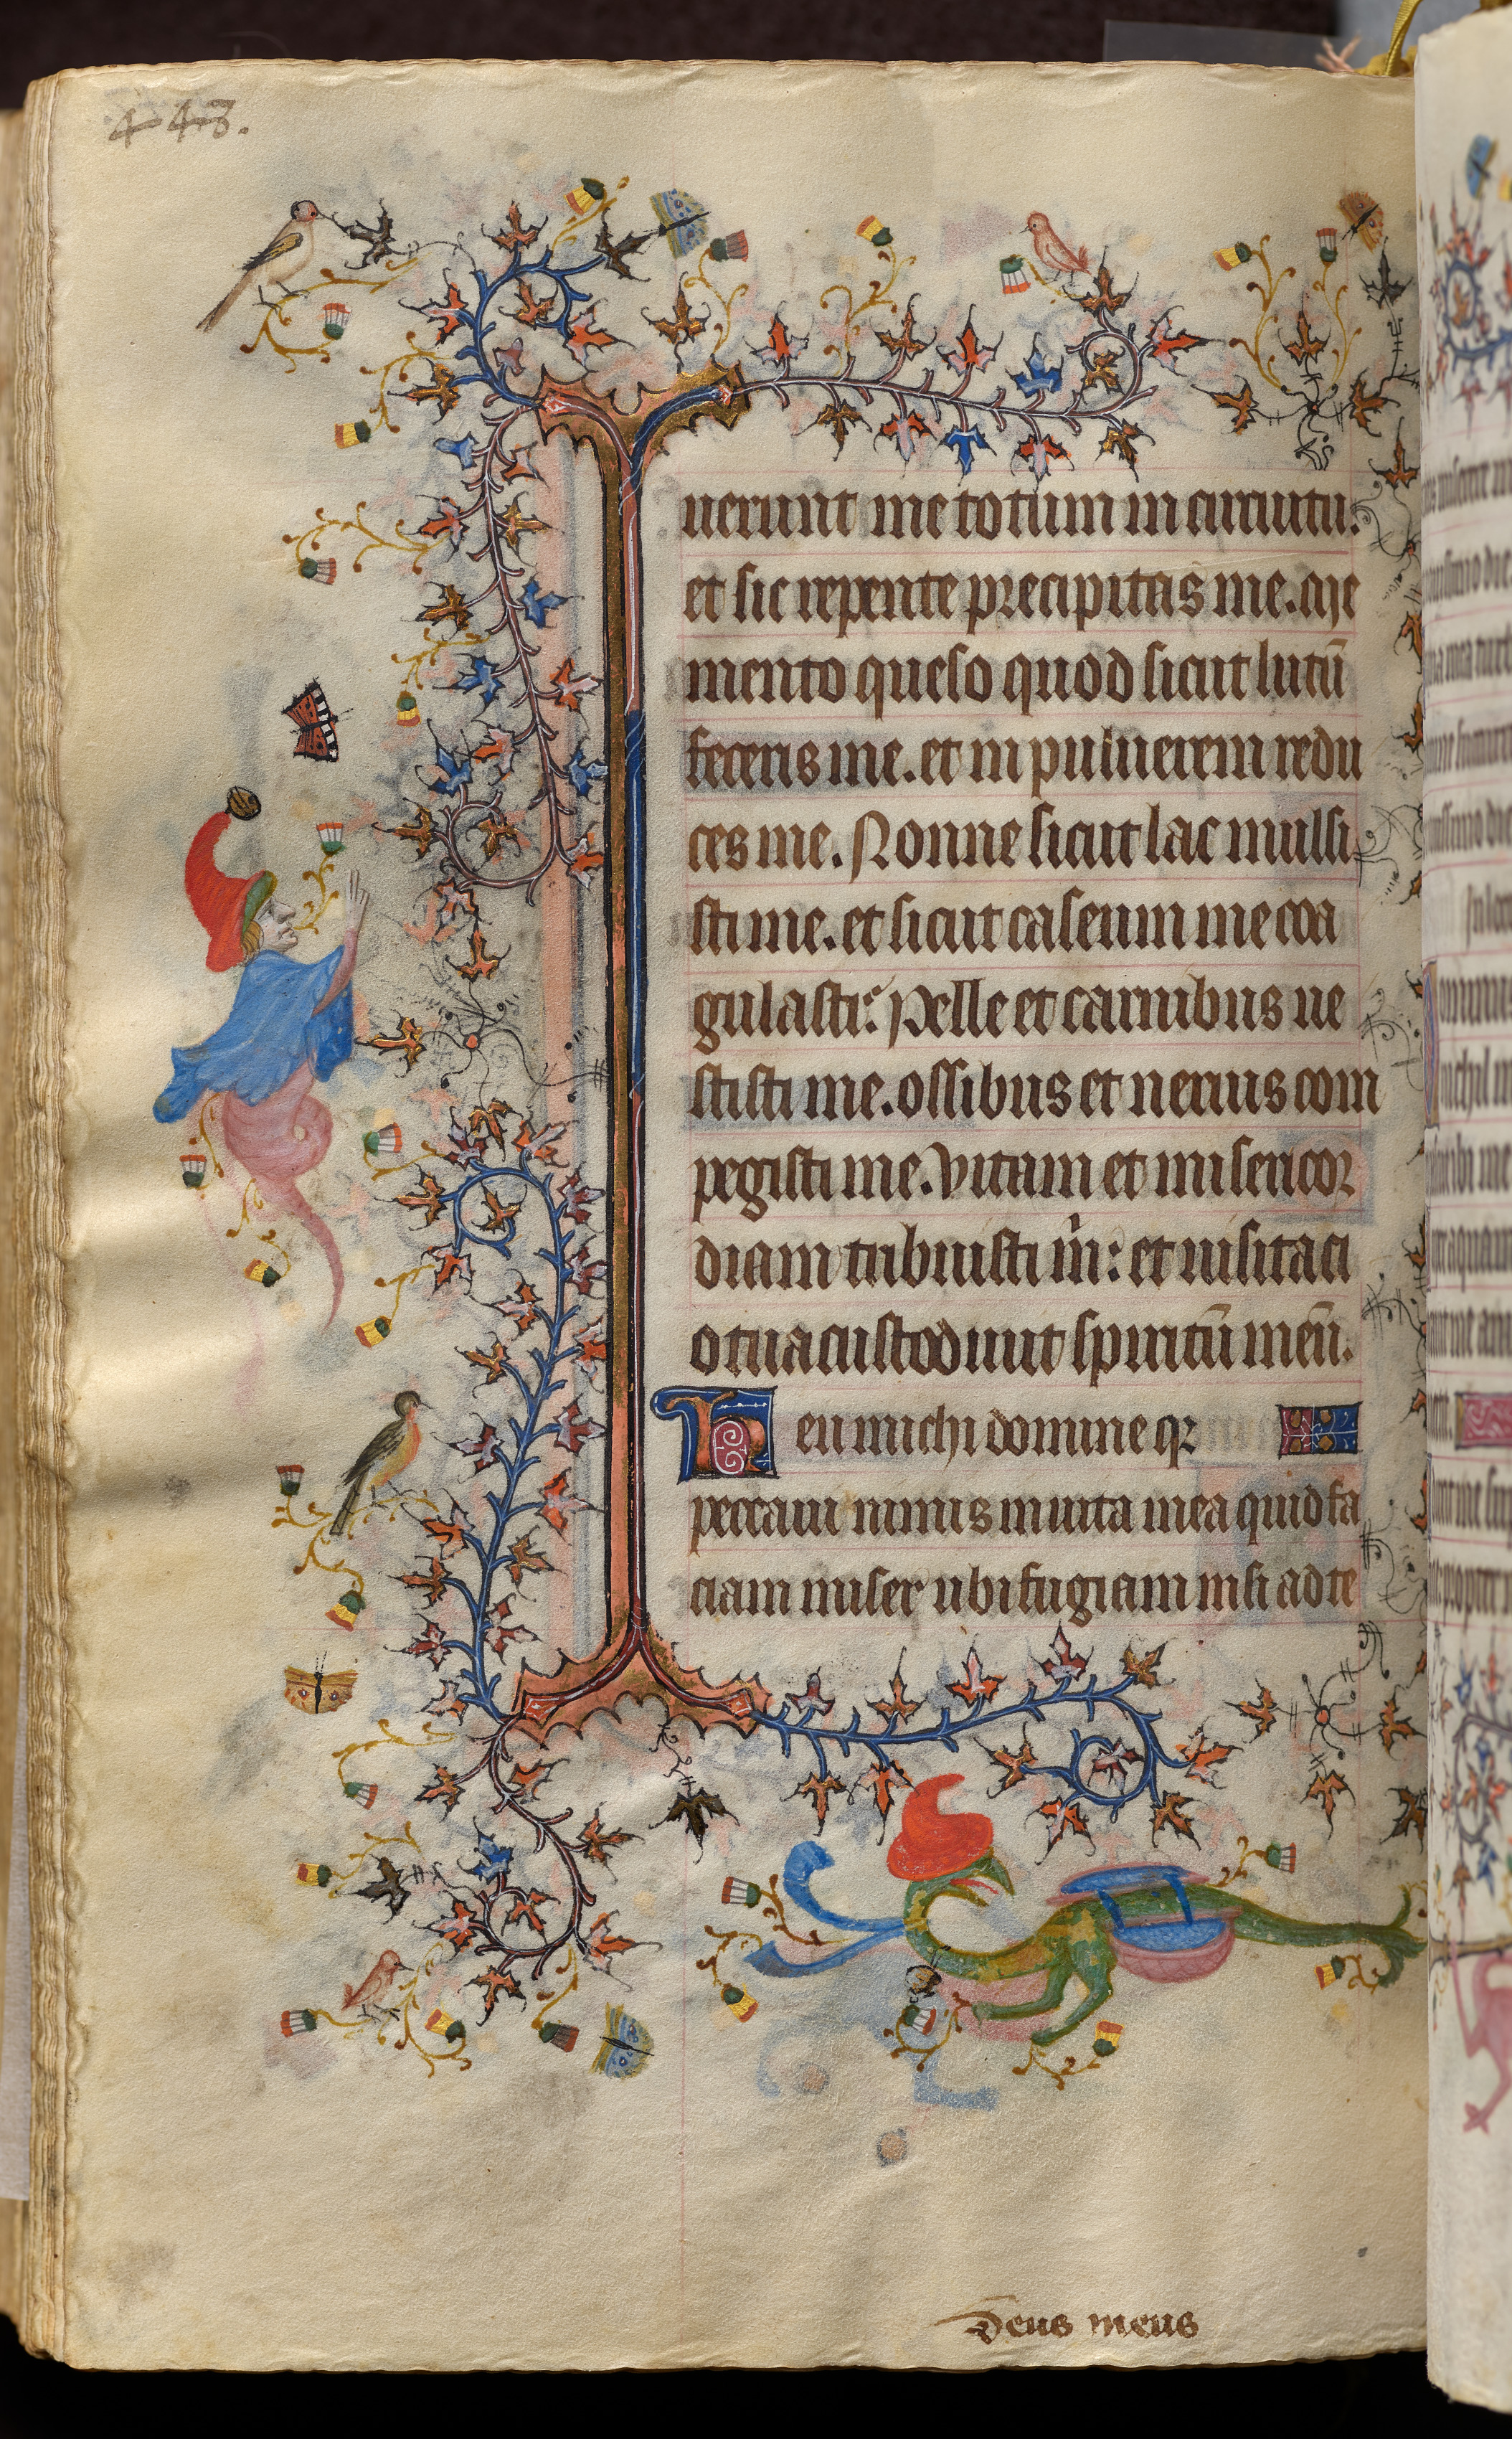 448.
uerunt me totum in circuitu:
et sic repente precipitas me. Me
mento queso quod sicut lutū
feceris me. et in puluerem redu
ces me. Nonne sicut lac mulsi
sti me. et sicut caseum me coa
gulasti: Pelle et carnibus ue
stisti me. ossibus et neruis com
pegisti me. Vitam et misericor
diam tribuisti m̄: et uisitaci
o tua custodiuit spiritū meū.
Heu michi domine qꝛ
peccaui nimis in uita mea quid fa
ciam miser ubi fugiam nisi ad te
Deus meus